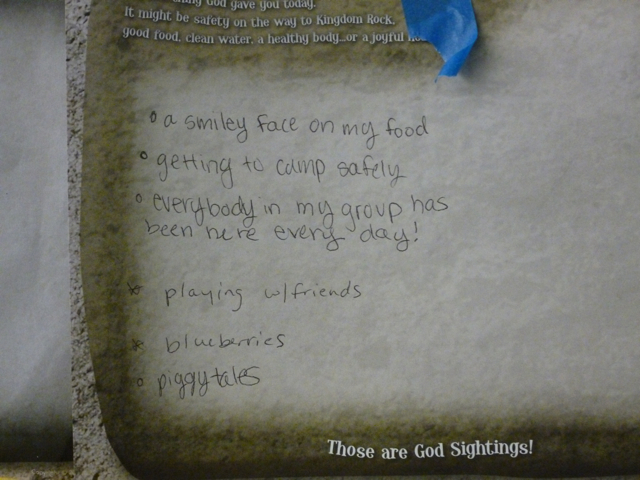 God gave you today.
It might be safety on the way to Kingdom Rock,
good food, clean water, a healthy body...or a joyful
• a smiley face on my food
• getting to camp safely
• everybody in my group has
been here every day!
* playing w/friends
* blueberries
• piggytales
Those are God Sightings!